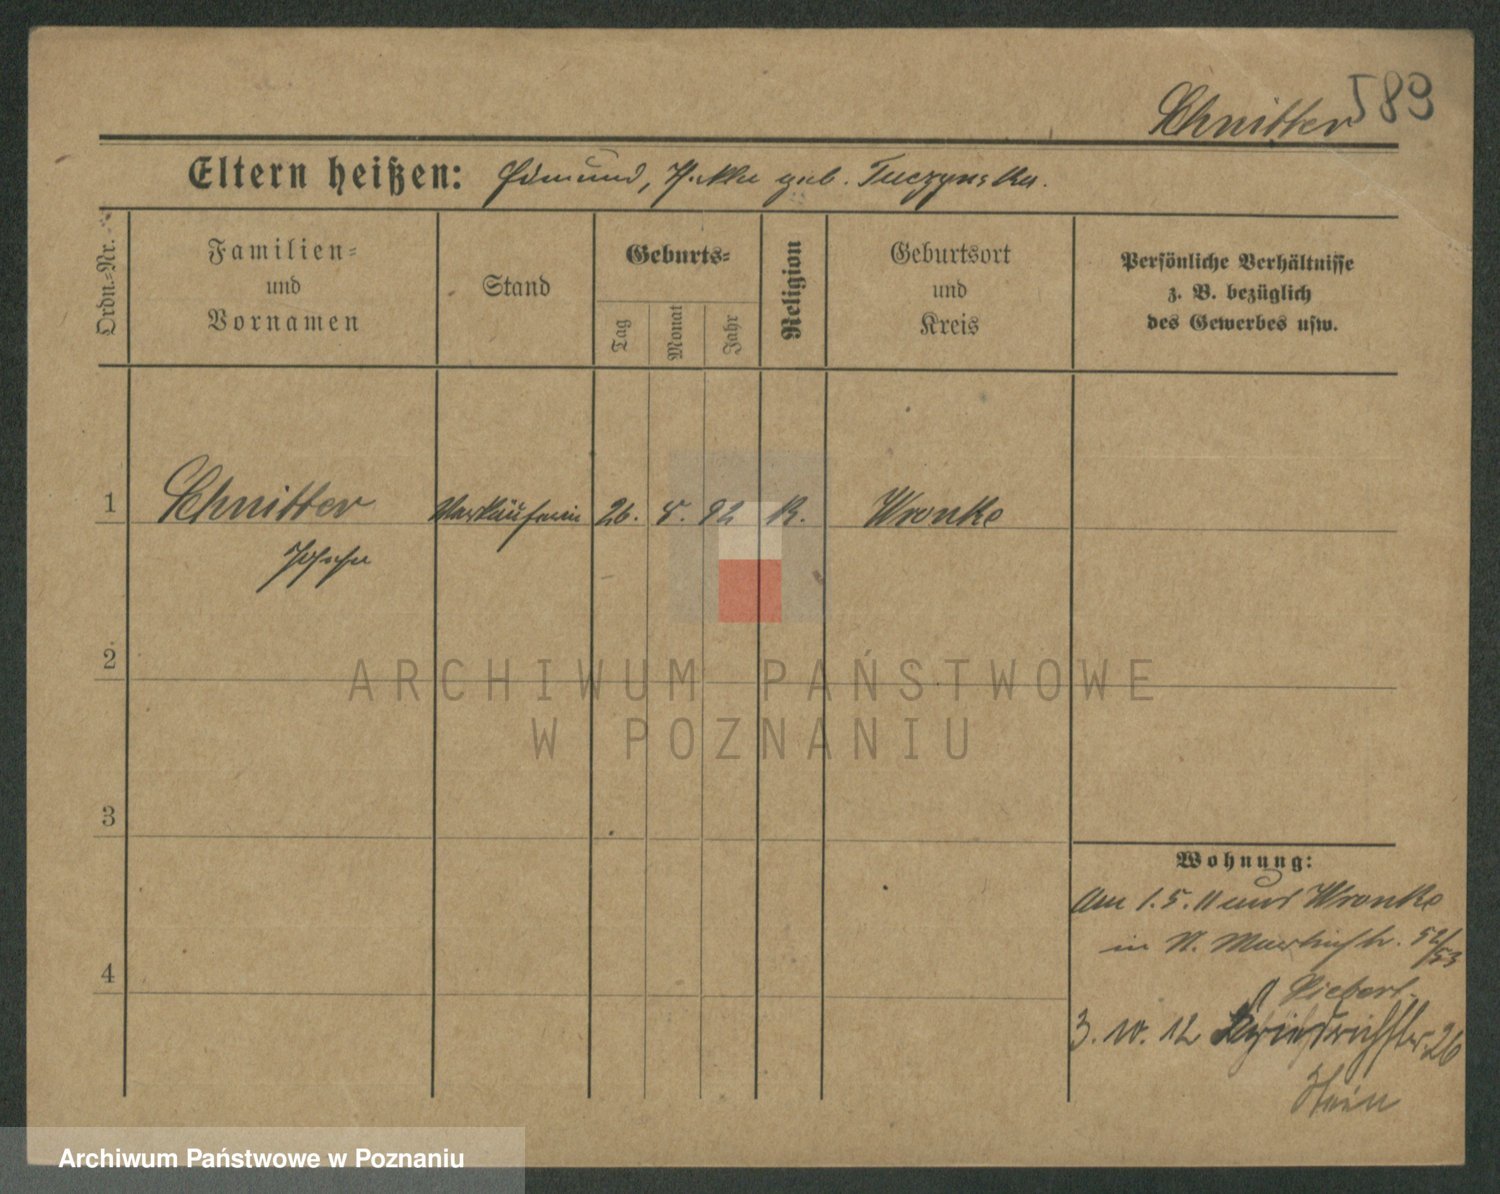 Schnitter 589
Eltern heißen: Edmund, geb. Tuczynska.
Ordn.-Nr.
Familien-
und
Vornamen
Stand
Geburts-
Tag
Monat
Jahr
Religion
Geburtsort
und
Kreis
Persönliche Verhältnisse
z. B. bezüglich
des Gewerbes usw.
1 Schnitter Verkäuferin 26. 5. 92 K. Wronke
2
3
4
Wohnung:
Am 1.5.11 aus Wronke
in St. Martinstr. 52/53
Siebert
3. 10. 12 Friedrichstr. 26
ARCHIWUM PAŃSTWOWE
W POZNANIU
Archiwum Państwowe w Poznaniu